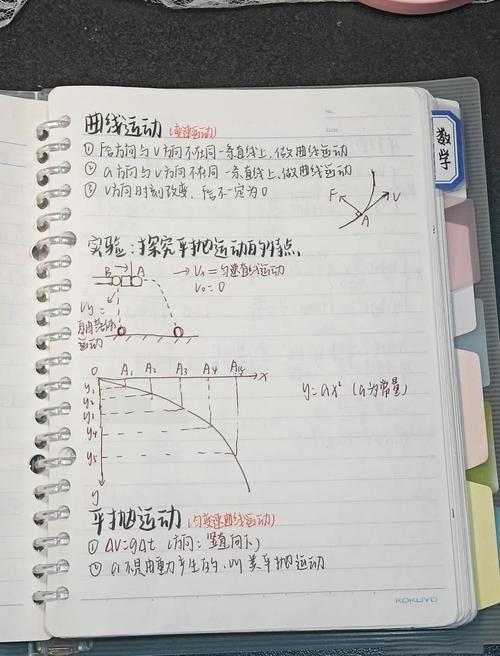 No.
Date
数学
曲线运动 (变速运动)
① F合方向与V方向不在同一条直线上,做曲线运动
② a方向与V方向不在同一条直线上,做曲线运动
③ V方向时刻改变,F合不一定为0
F V
A
实验:探究平抛运动的特点
B A → Vx=匀速直线运动
V0=0
Vy=
自由落体
运动
O A1 A2 A3 A4 x
y1
y2
y3
y4
y5
y
y=ax² (a为常量)
平抛运动 (匀变速曲线运动)
① ΔV=gΔt (方向:竖直向下)
② a不是由重力产生的,叫类平抛运动
KOKUYO